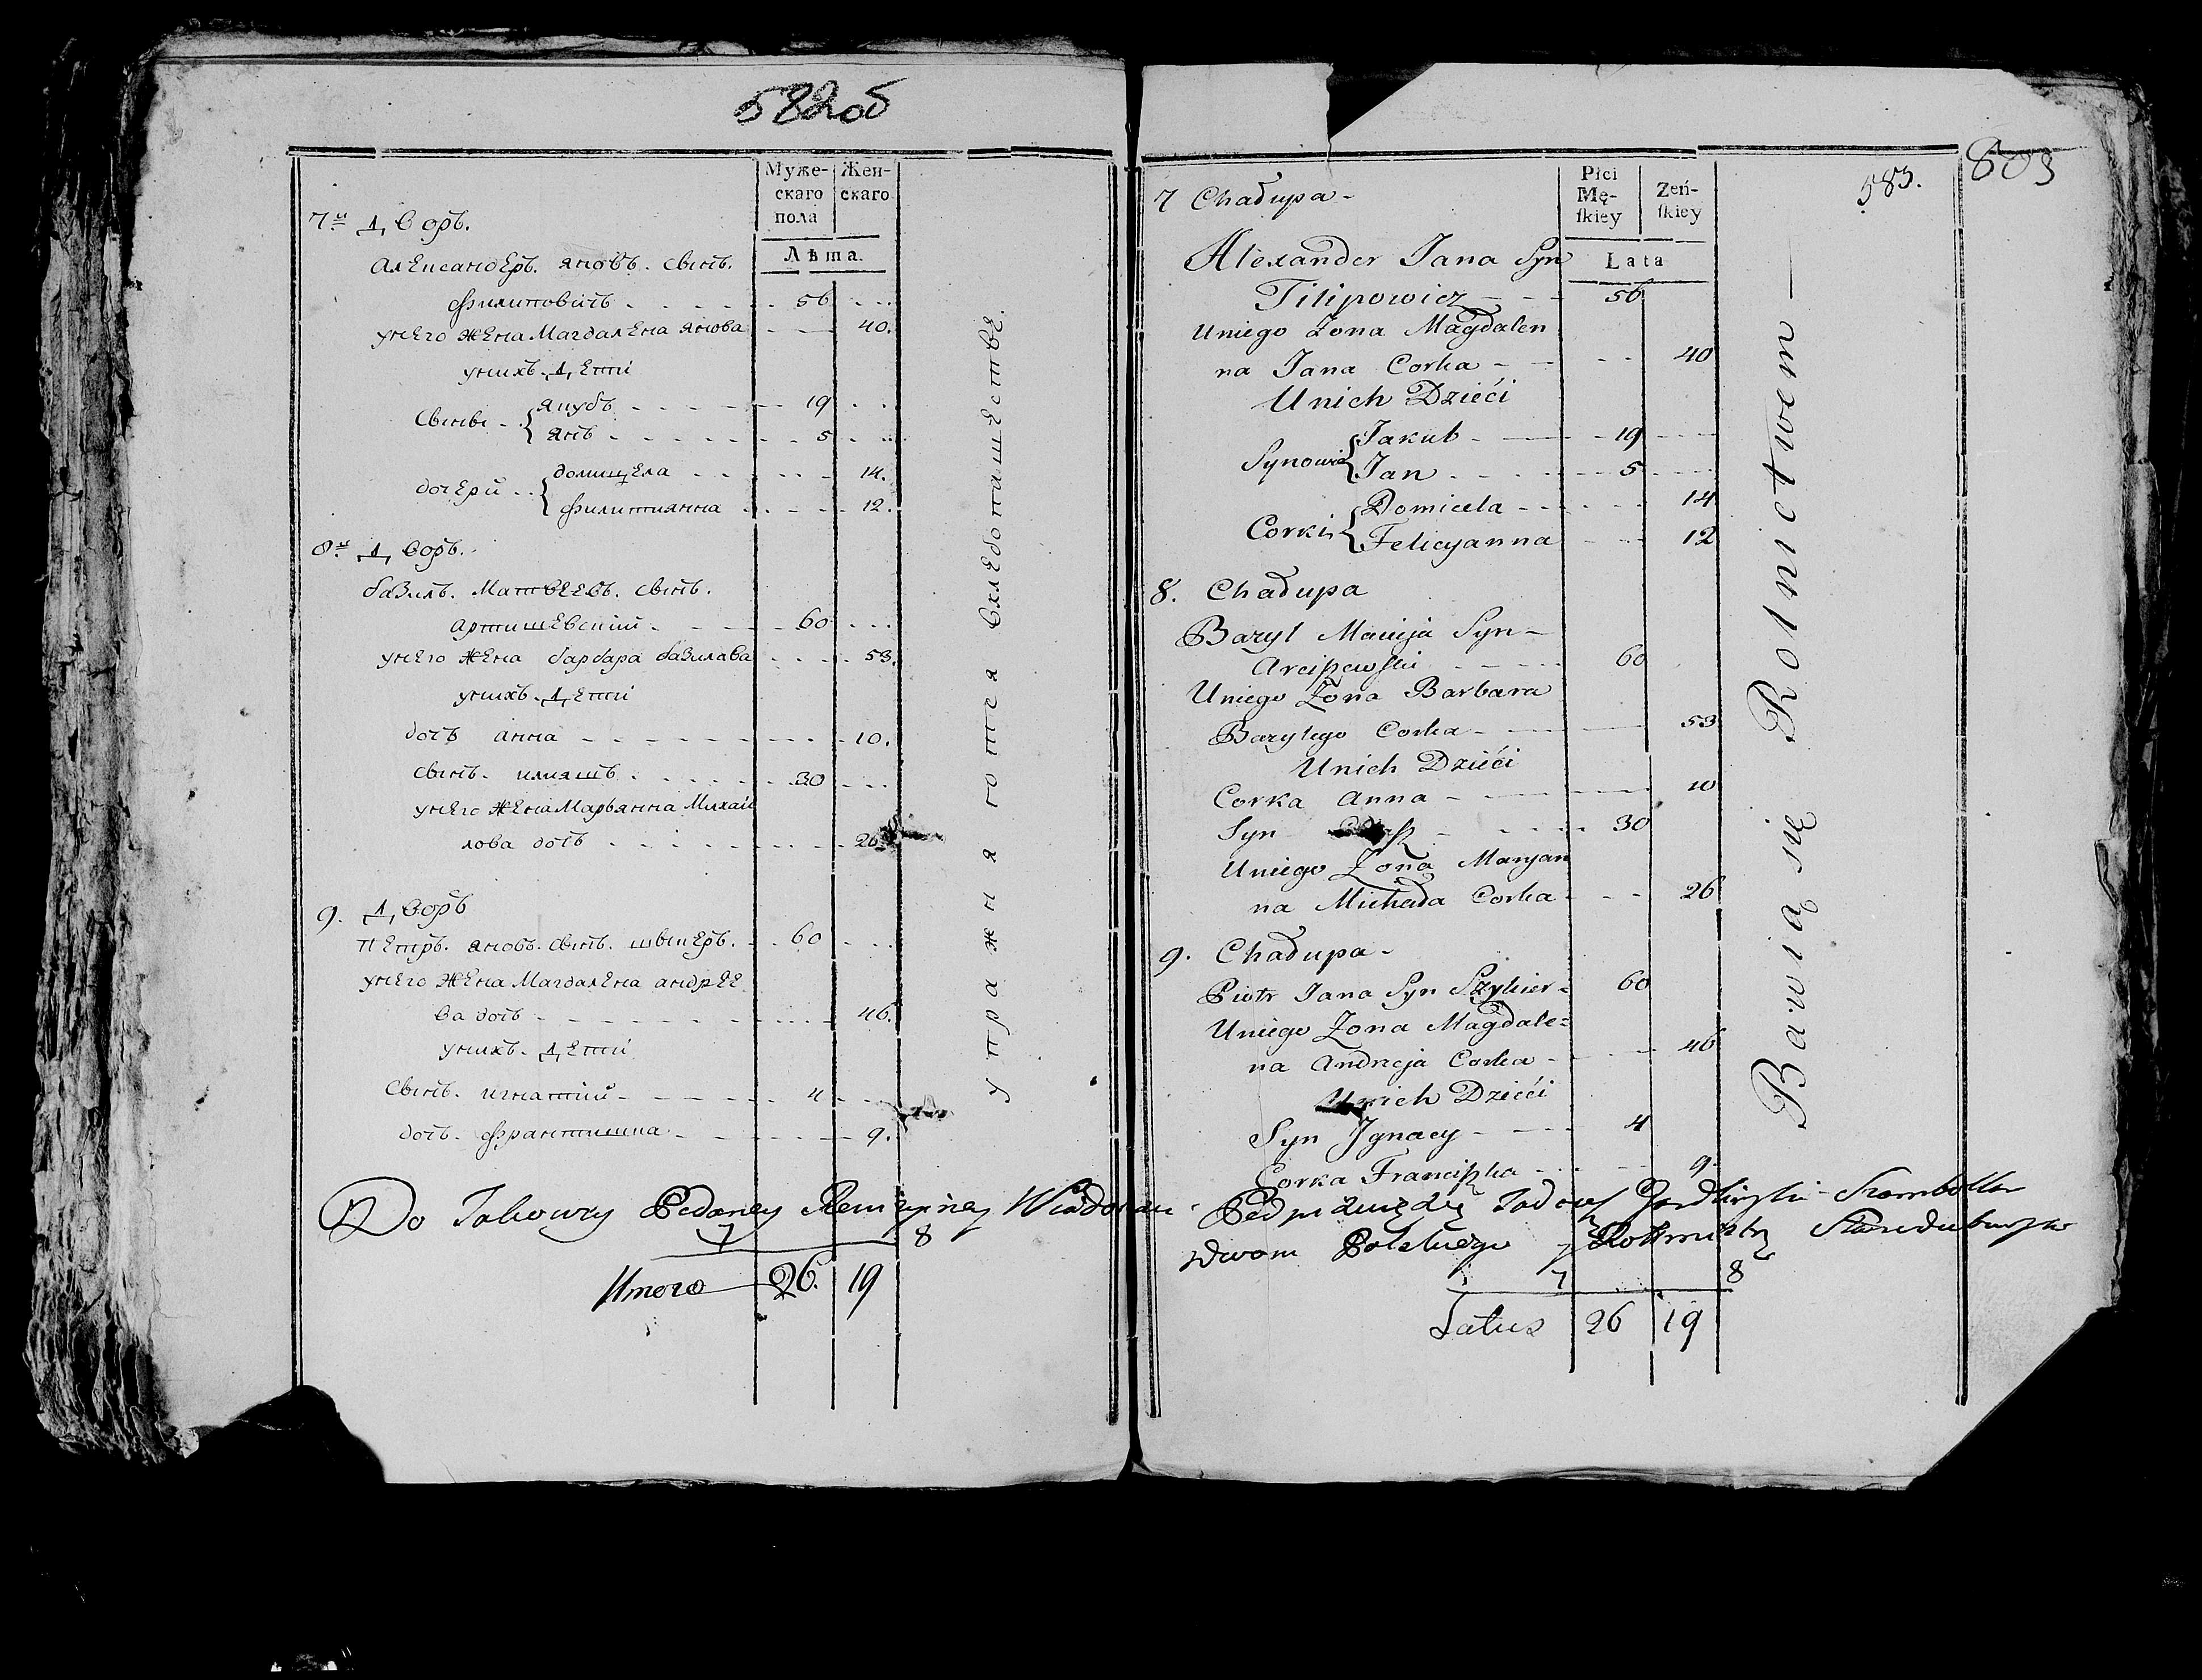 582об
Муже-
скаго
пола
Жен-
скаго
Лѣта.
7й Дворъ.
Александеръ. яновъ. сынъ.
филиповичъ 56
унего жена Магдалена янова 40.
унихъ. Дети
сыны { якубъ 19
янъ 5
дочери { домицела 14.
филициянна 12.
8й Дворъ.
базиль. Матвеевъ. сынъ.
арцишевский 60
унего жена барбара базилава 53.
унихъ. Дети
дочь анна 10.
сынъ. илияшъ 30
унего жена Марьянна Михаи
лова дочь 26
9. Дворъ
петръ. яновъ. сынъ. шыкеръ. 60
унего жена Магдалена андрее
ва дочь 46.
унихъ. Дети
сынъ. игнатий 4
дочь. францишка 9.
упражняются вхлебопашестве.
7 8
Итого 26. 19
583.
603
Płci
Mę-
ſkiey
Zeń-
ſkiey
Lata
7 Chałupa
Alexander Jana Syn
Filipowicz 56
Uniego Zona Magdalen
na Jana Corka 40
Unich Dzieći
Synowie { Jakub 19
Jan 5
Corki { Domicela 14
Felicyanna 12
8. Chałupa
Bazyl Macieja Syn
Arciszewski 60
Uniego Zona Barbara
Bazylego Corka 53
Unich Dzieći
Corka Anna 10
Syn 30
Uniego Zona Maryan
na Michała Corka 26
9. Chałupa
Piotr Jana Syn Szykier 60
Uniego Zona Magdale=
na Andrzeja Corka 46
Unich Dzieći
Syn Jgnacy 4
Corka Franciszka 9.
Bawią się Rolnictwem
Do Takowey Podaney
Dworu Polskiego
7 8
Latus 26 19